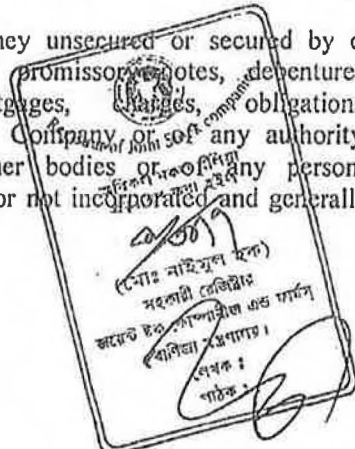 ney unsecured or secured by
promissory notes, debenture
tgages, charges, obligation
Company or of any authority
her bodies or of any person
or not incorporated and generall
Registrar of Joint Stock Companies
(মোঃ নাইমুল হক)
সহকারী রেজিষ্ট্রার
জয়েন্ট ষ্টক কোম্পানীজ এন্ড ফার্মস্
বাণিজ্য মন্ত্রণালয়।
লেখক :
পাঠক :